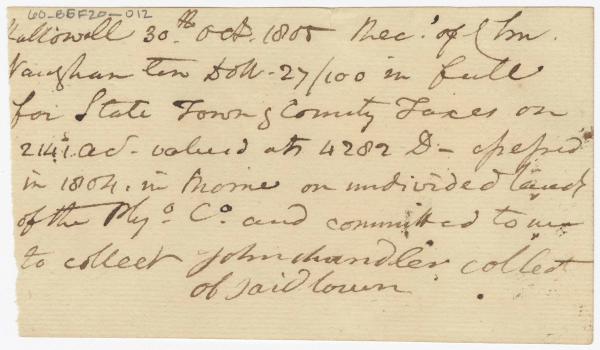 60-BEF20-012
Hallowell 30.th Oct. 1805 Rec.d of Chs.
Vaughan ten Doll. 27/100 in full
for State Town & County Taxes on
2141. ac. valued at 4282 D- assessed
in 1804. in Rome on undivided lands
of the Ply.o Co. and committed to me
to collect John Chandler collect
of said town